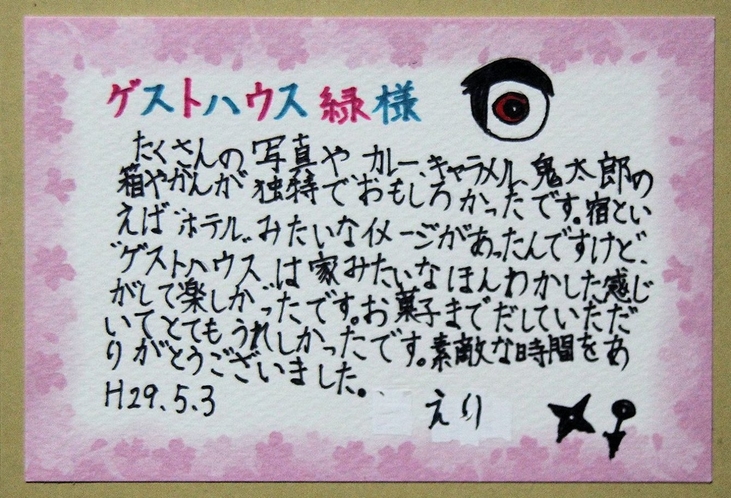 ゲストハウス緑様
たくさんの写真や カレー、キャラメル、鬼太郎の
箱やがんが独特でおもしろかったです。宿とい
えば"ホテル"みたいなイメージがあったんですけど、
"ゲストハウス"は家みたいなほんわかした感じ
がして楽しかったです。お菓子までだしていただ
いてとてもうれしかったです。素敵な時間をあ
りがとうございました。
H29.5.3 えり